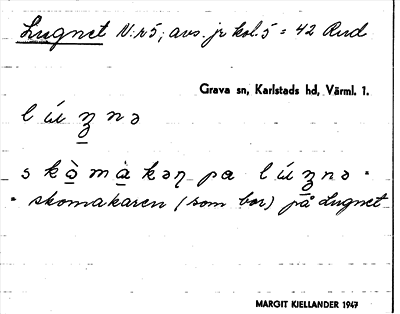 Lugnet N:r 5; avs. jr kol. 5 = 42 Rud
Grava sn, Karlstads hd, Värml. 1.
l ú ʒ n ə
s k ò m à k ə ɳ p a l ú ʒ n ə ·
· skomakaren (som bor) på Lugnet
MARGIT KJELLANDER 1947